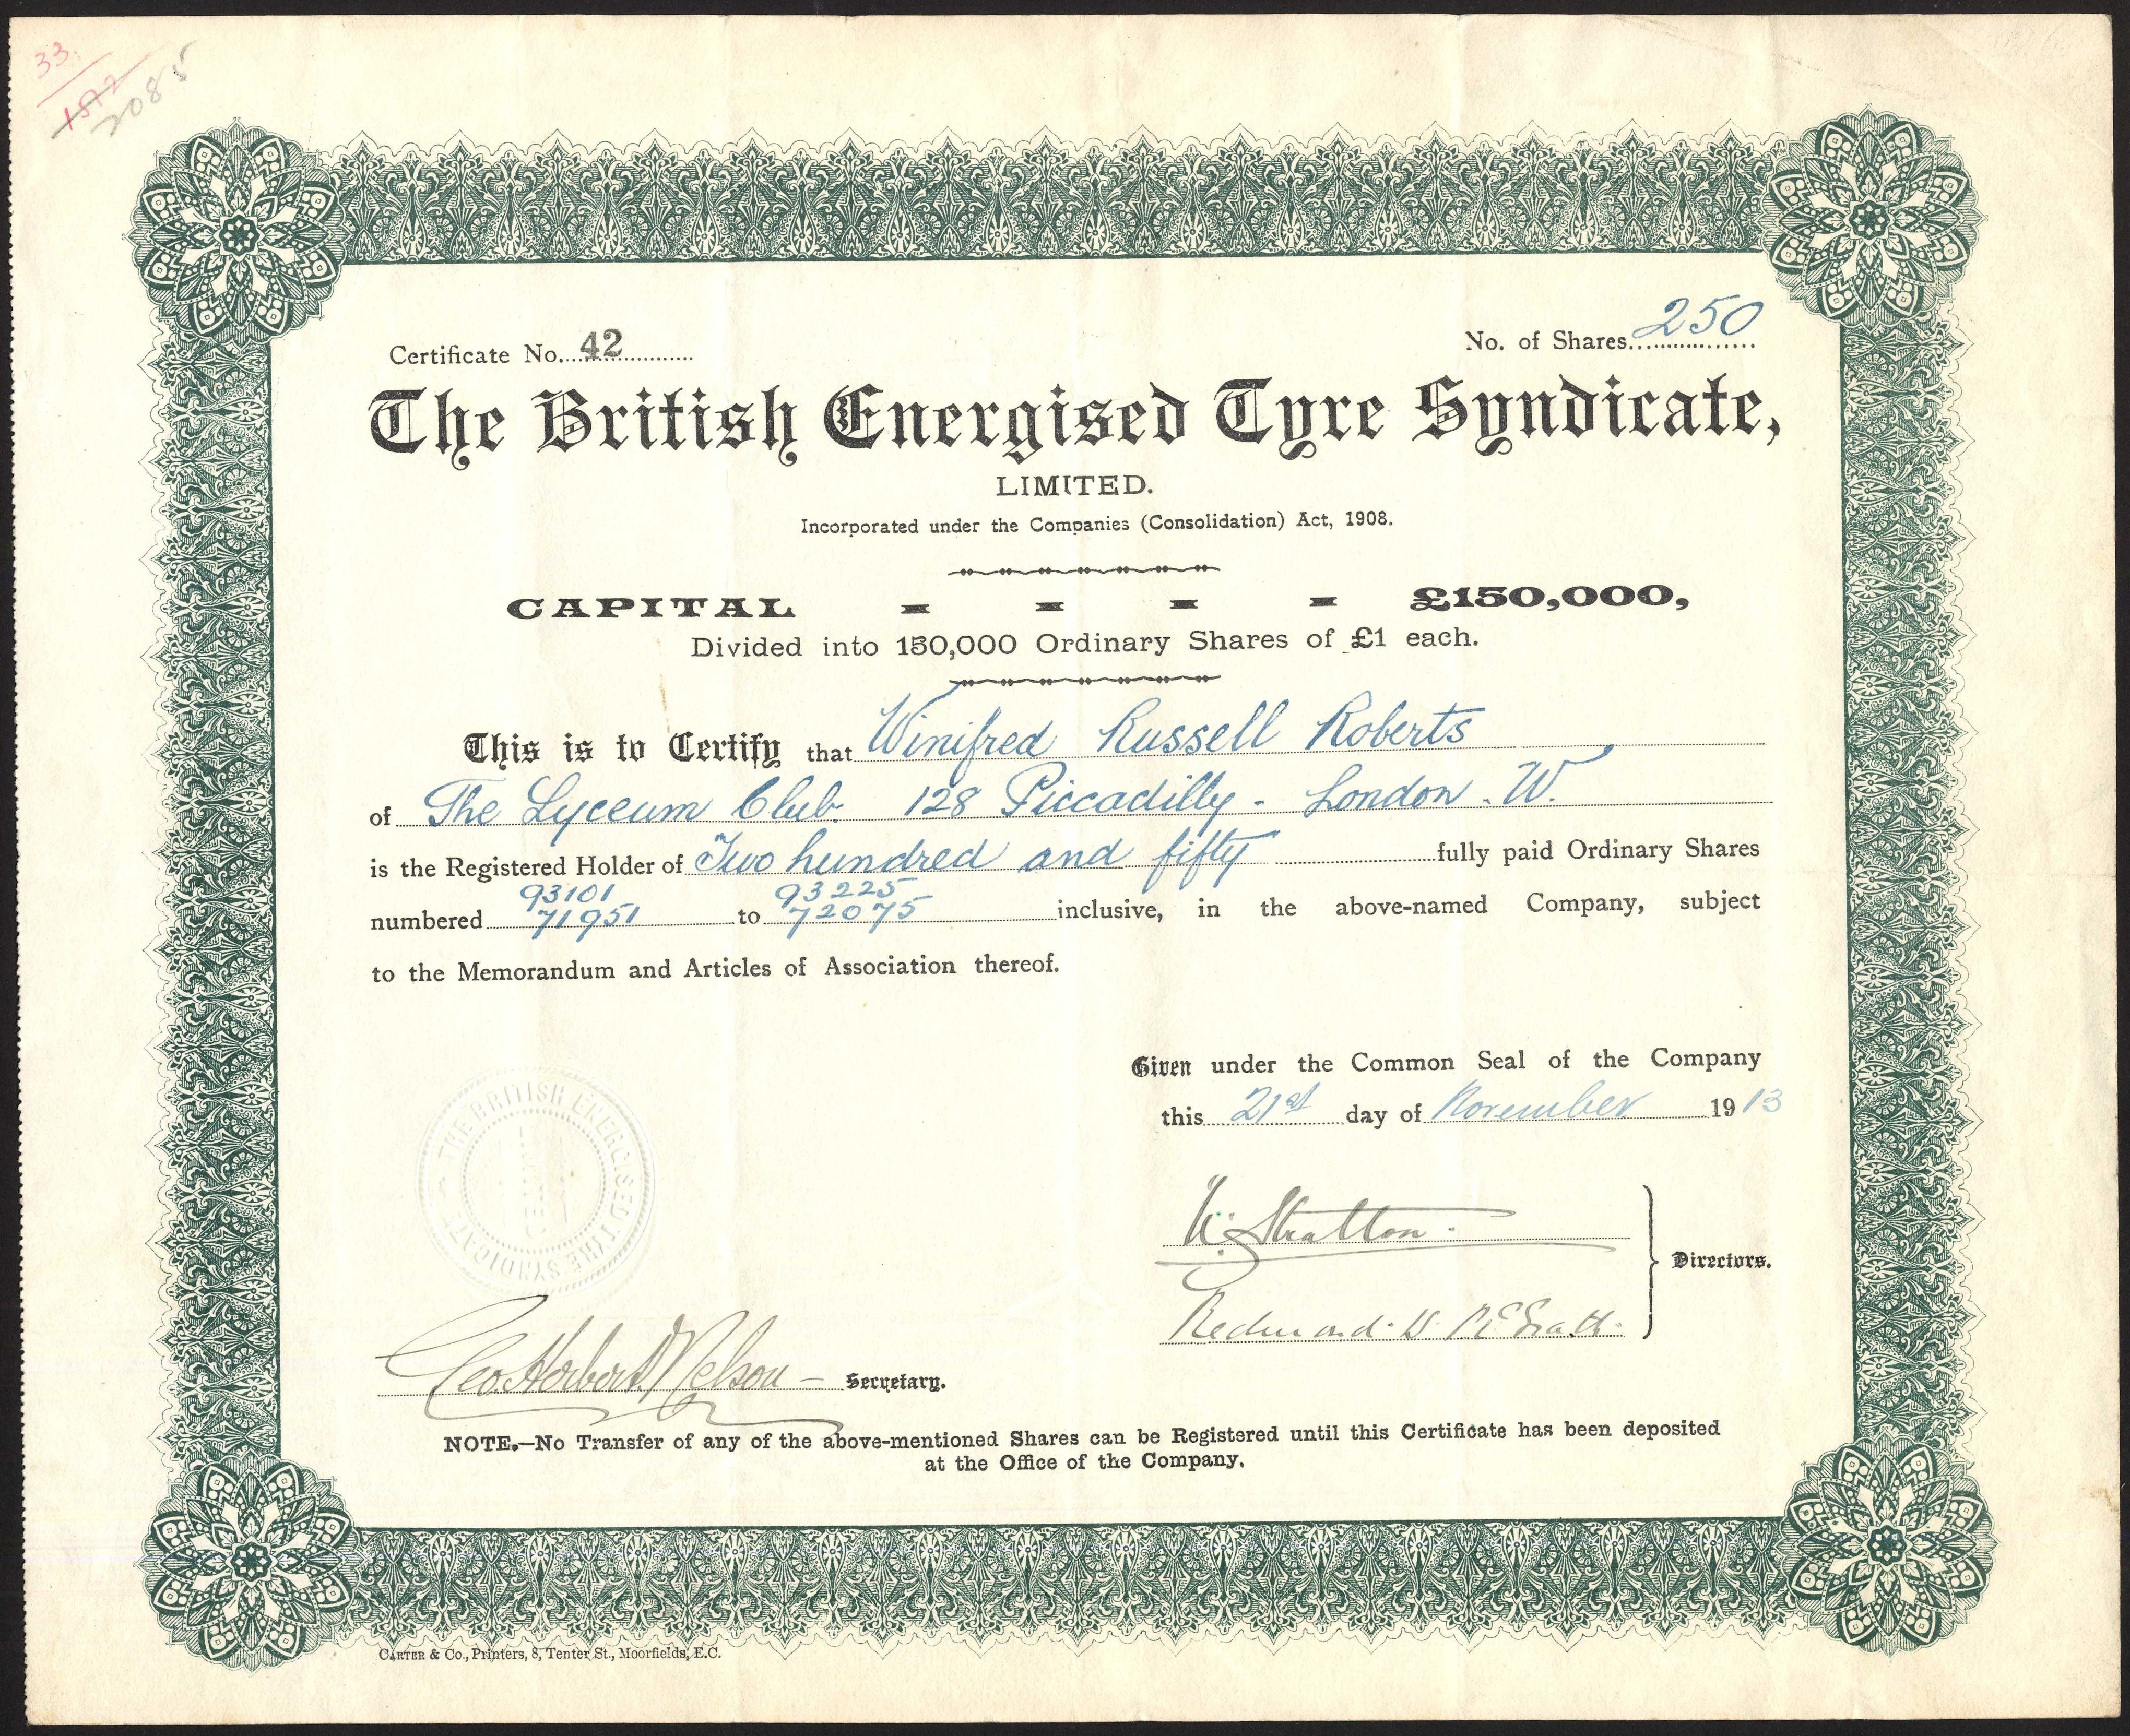 33.
1572
2085
Certificate No. 42
No. of Shares 250
The British Energised Tyre Syndicate,
LIMITED.
Incorporated under the Companies (Consolidation) Act, 1908.
CAPITAL - - - - £150,000,
Divided into 150,000 Ordinary Shares of £1 each.
This is to Certify that Winifred Russell Roberts
of The Lyceum Club. 128 Piccadilly - London. W.
is the Registered Holder of Two hundred and fifty fully paid Ordinary Shares
93101 93225
numbered 71951 to 72075 inclusive, in the above-named Company, subject
to the Memorandum and Articles of Association thereof.
Given under the Common Seal of the Company
this 21st day of November 1913
THE BRITISH ENERGISED TYRE SYNDICATE
LIMITED
Stratton
Directors.
Redmond McGrath
Geo. Herbert Nelson Secretary.
NOTE.—No Transfer of any of the above-mentioned Shares can be Registered until this Certificate has been deposited
at the Office of the Company.
CARTER & Co., Printers, 8, Tenter St., Moorfields, E.C.